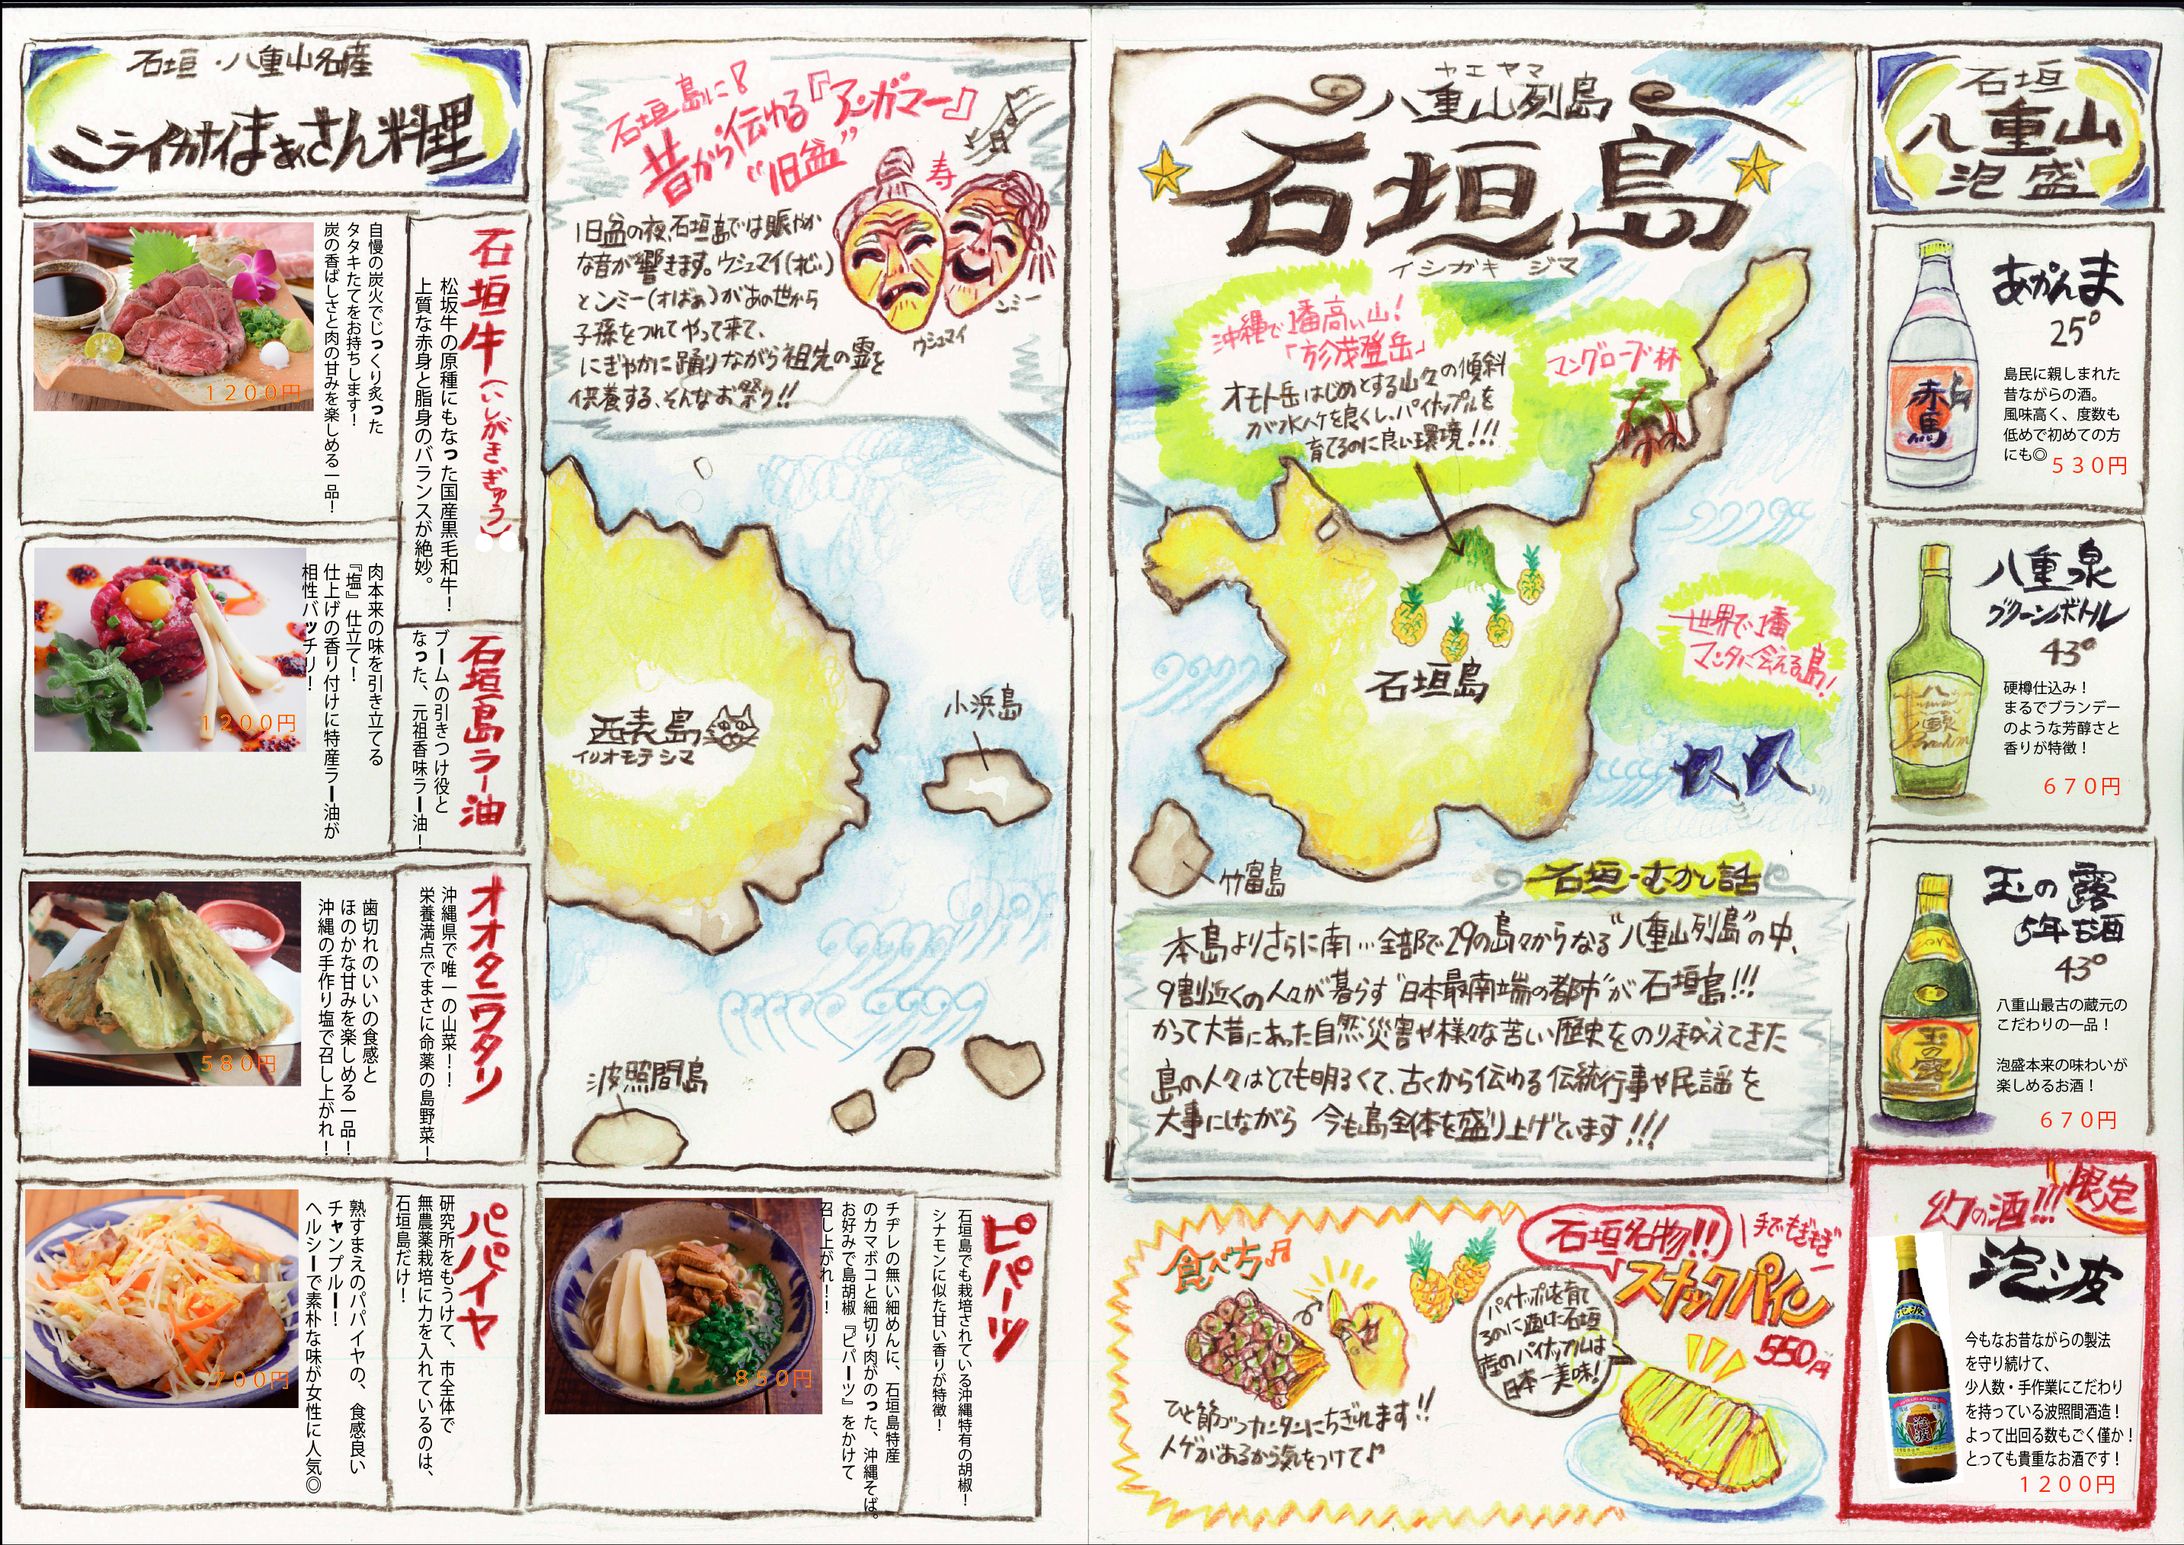 石垣・八重山名産
ニライカナイまぁさん料理
石垣牛(いしがきぎゅう)
松坂牛の原種にもなった国産黒毛和牛!
上質な赤身と脂身のバランスが絶妙。
自慢の炭火でじっくり炙った
タタキたてをお持ちします!
炭の香ばしさと肉の甘みを楽しめる一品!
1200円
石垣島ラー油
ブームの引きつけ役と
なった、元祖香味ラー油!
肉本来の味を引き立てる
『塩』仕立て!
仕上げの香り付けに特産ラー油が
相性バッチリ!
1200円
オオタニワタリ
沖縄県で唯一の山菜!!
栄養満点でまさに命薬の島野菜!
歯切れのいいの食感と
ほのかな甘みを楽しめる一品!
沖縄の手作り塩で召し上がれ!
580円
パパイヤ
研究所をもうけて、市全体で
無農薬栽培に力を入れているのは、
石垣島だけ!
熟すまえのパパイヤの、食感良い
チャンプルー!
ヘルシーで素朴な味が女性に人気◎
700円
ピパーツ
石垣島でも栽培されている沖縄特有の胡椒!
シナモンに似た甘い香りが特徴!
チヂレの無い細めんに、石垣島特産
のカマボコと細切り肉がのった、沖縄そば。
お好みで島胡椒『ピパーツ』をかけて
召し上がれ!!
850円
石垣島に!
昔から伝ゆる『アンガマー』
"旧盆"
寿
旧盆の夜、石垣島では賑やか
な音が響きます。ウシュマイ(おじぃ)
とンミー(おばぁ)があの世から
子孫をつれてやって来て、
にぎやかに踊りながら祖先の霊を
供養する、そんなお祭り!!
ウシュマイ
ンミー
西表島
イリオモテシマ
小浜島
波照間島
ヤエヤマ
八重山列島
石垣島
イシガキジマ
沖縄で1番高い山!
「於茂登岳」
オモト岳はじめとする山々の傾斜
が水ハケを良くし、パイナップルを
育てるのに良い環境!!!
マングローブ林
石垣島
世界で1番
マンタに会える島!
竹富島
石垣・むかし話
本島よりさらに南…全部で29の島々からなる"八重山列島"の中、
9割近くの人々が暮らす"日本最南端の都市"が石垣島!!!
かつて大昔にあった自然災害や様々な苦い歴史をのり越えてきた
島の人々はとても明るくて、古くから伝ゆる伝統行事や民謡を
大事にしながら 今も島全体を盛り上げています!!!
食べ方♬
ひと節づつカンタンにちぎれます!!
トゲがあるから気をつけて♪
石垣名物!!
手でもぎもぎ
スナックパイン
550円
パイナップルを育て
るのに適した石垣
産のパイナップルは
日本一美味!
石垣
八重山
泡盛
あかんま
25°
赤馬
島民に親しまれた
昔ながらの酒。
風味高く、度数も
低めで初めての方
にも◎
530円
八重泉
グリーンボトル
43°
硬樽仕込み!
まるでブランデー
のような芳醇さと
香りが特徴!
670円
玉の露
5年古酒
43°
玉の露
八重山最古の蔵元の
こだわりの一品!
泡盛本来の味わいが
楽しめるお酒!
670円
幻の酒!!!
限定
泡波
泡波
今もなお昔ながらの製法
を守り続けて、
少人数・手作業にこだわり
を持っている波照間酒造!
よって出回る数もごく僅か!
とっても貴重なお酒です!
1200円